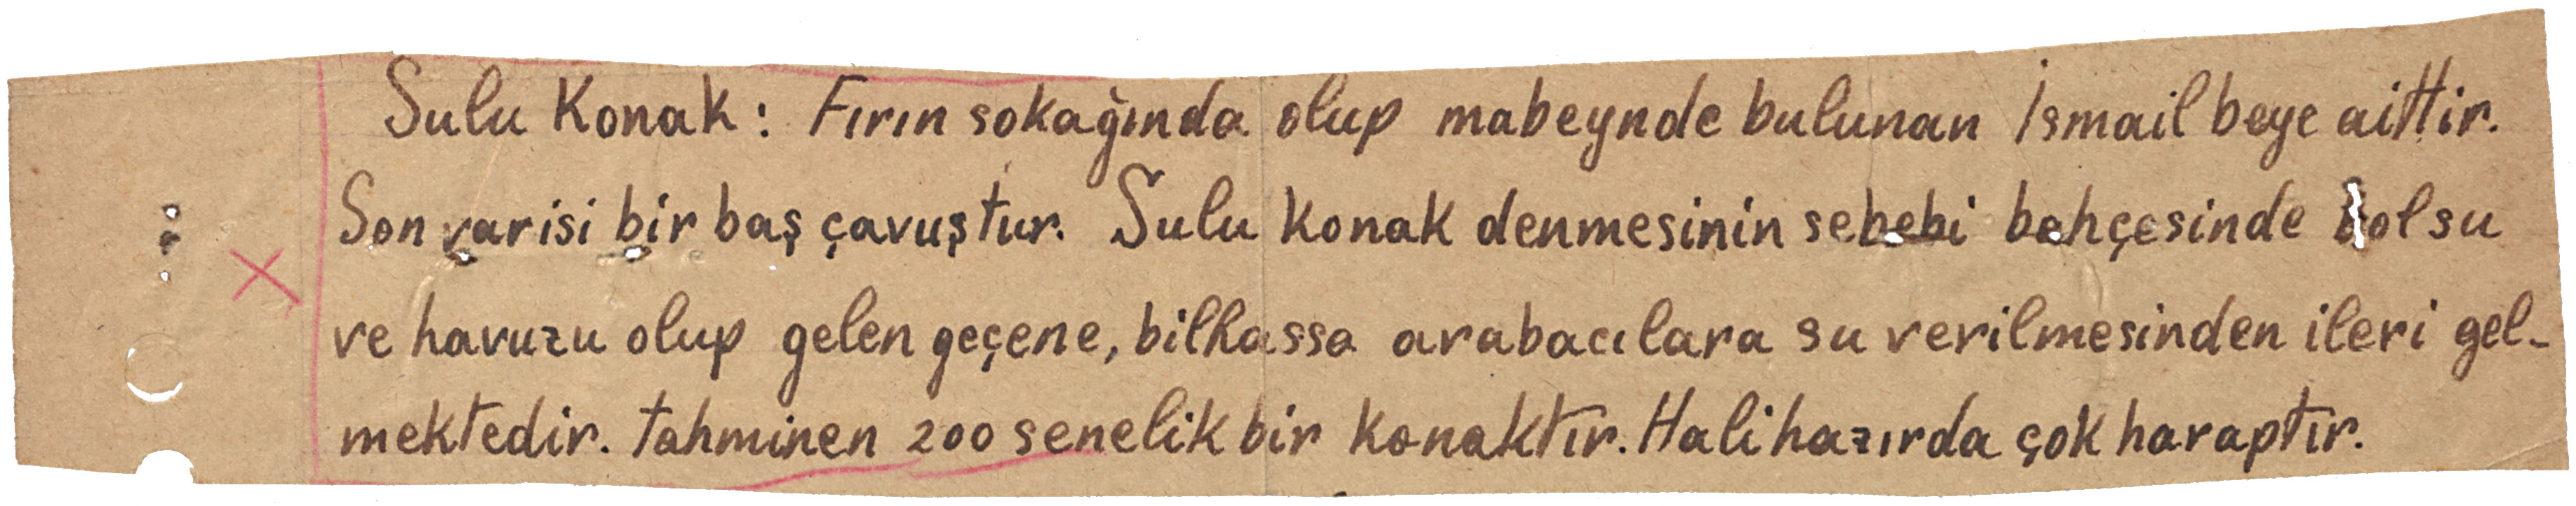 Sulu Konak: Fırın sokağında olup mabeynde bulunan İsmail beye aittir.
Son varisi bir baş çavuştur. Sulu Konak denmesinin sebebi bahçesinde bol su
ve havuzu olup gelen geçene, bilhassa arabacılara su verilmesinden ileri gel-
mektedir. Tahminen 200 senelik bir konaktır. Hali hazırda çok haraptır.